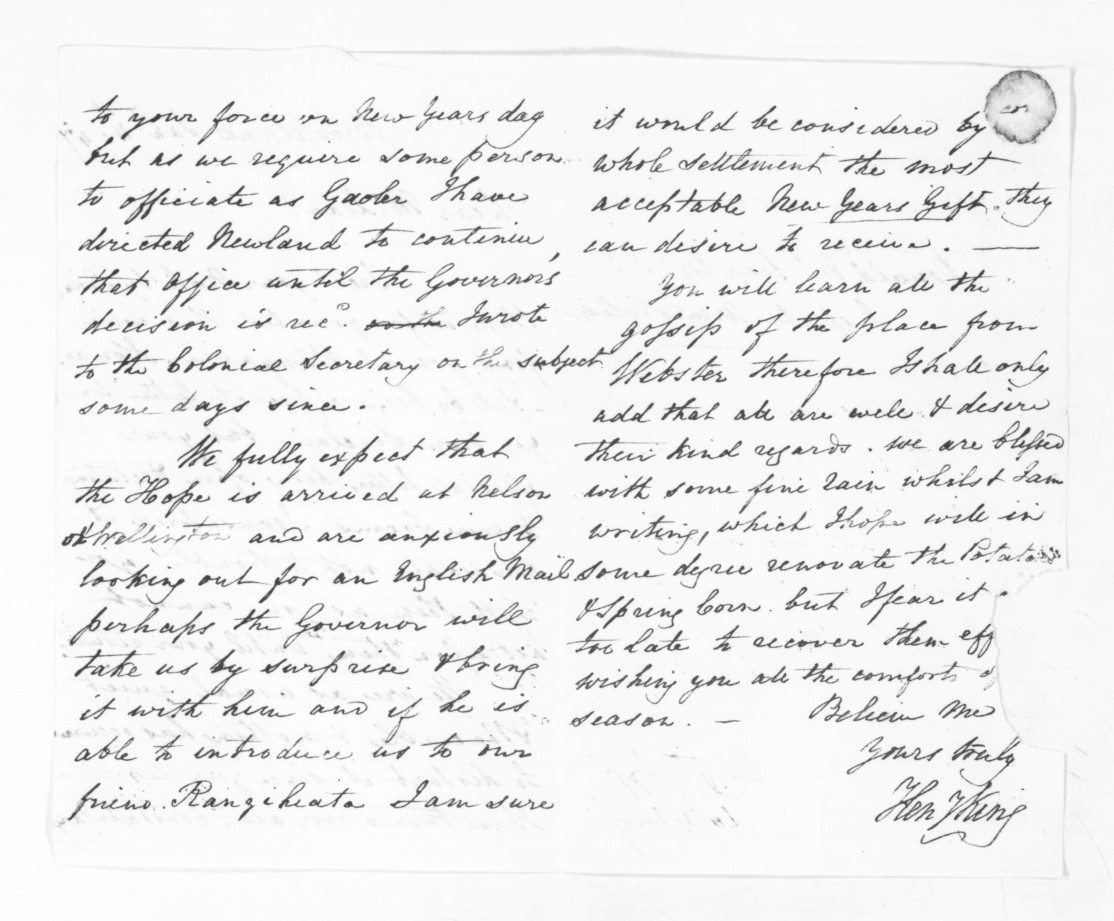 to your force on New Years day
but as we require some person
to officiate as Gaoler I have
directed Newland to continue
that Office until the Governor's
decision is recd. on the I wrote
to the Colonial Secretary on the subject
some days since.
We fully expect that
the Hope is arrived at Nelson
or Wellington and are anxiously
looking out for an English Mail
perhaps the Governor will
take us by surprise & bring
it with him and if he is
able to introduce us to our
friend Rangiheata I am sure
it would be considered by
whole settlement the most
acceptable New Years Gift. they
can desire to receive. —
You will learn all the
gossip of the place from
Webster therefore I shall only
add that all are well & desire
their kind regards. we are blessed
with some fine rain whilst I am
writing, which I hope will in
some degree renovate the Potatoes
& Spring Corn. but I fear it
too late to recover them eff
wishing you all the comforts of
season. — Believe Me
Yours truly
Hen King